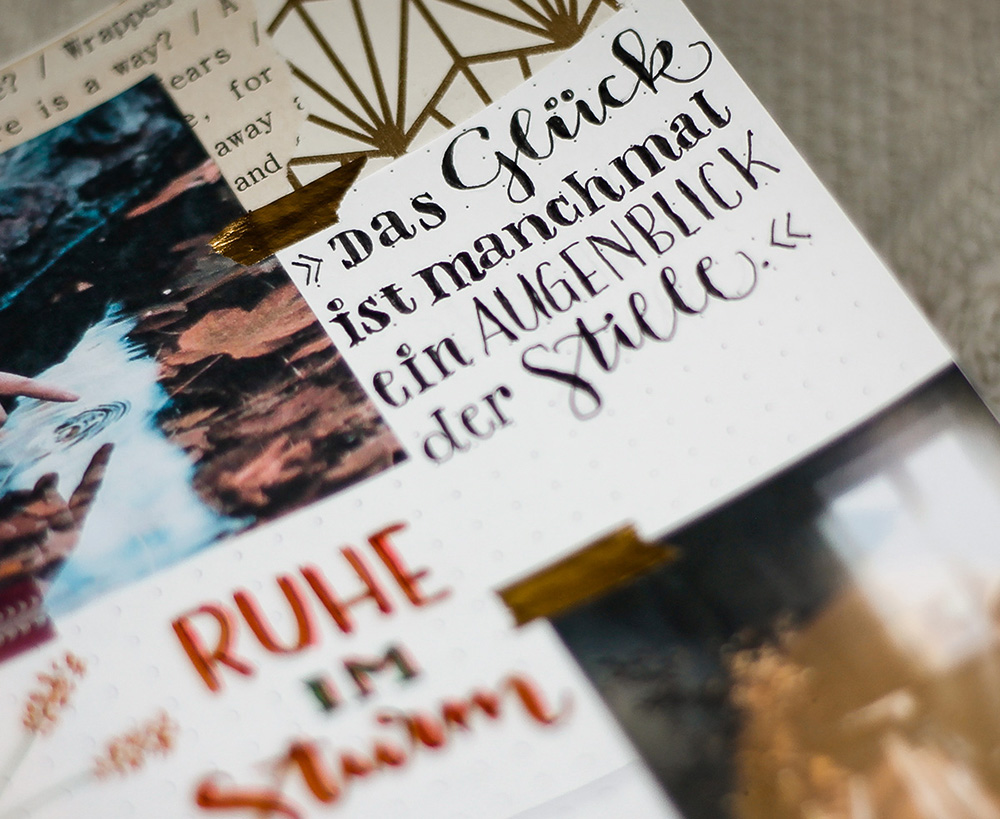 ? / Wrapped
e is a way? / A
ears /
e, for
away
and
»Das Glück
ist manchmal
ein AUGENBLICK
der Stille.«
RUHE
IM
Sturm